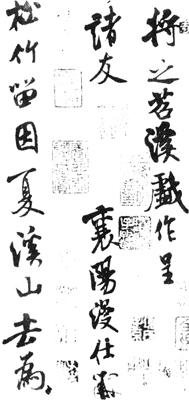 将之苕溪戲作呈
諸友
襄陽漫仕黻
松竹留因夏溪山去為